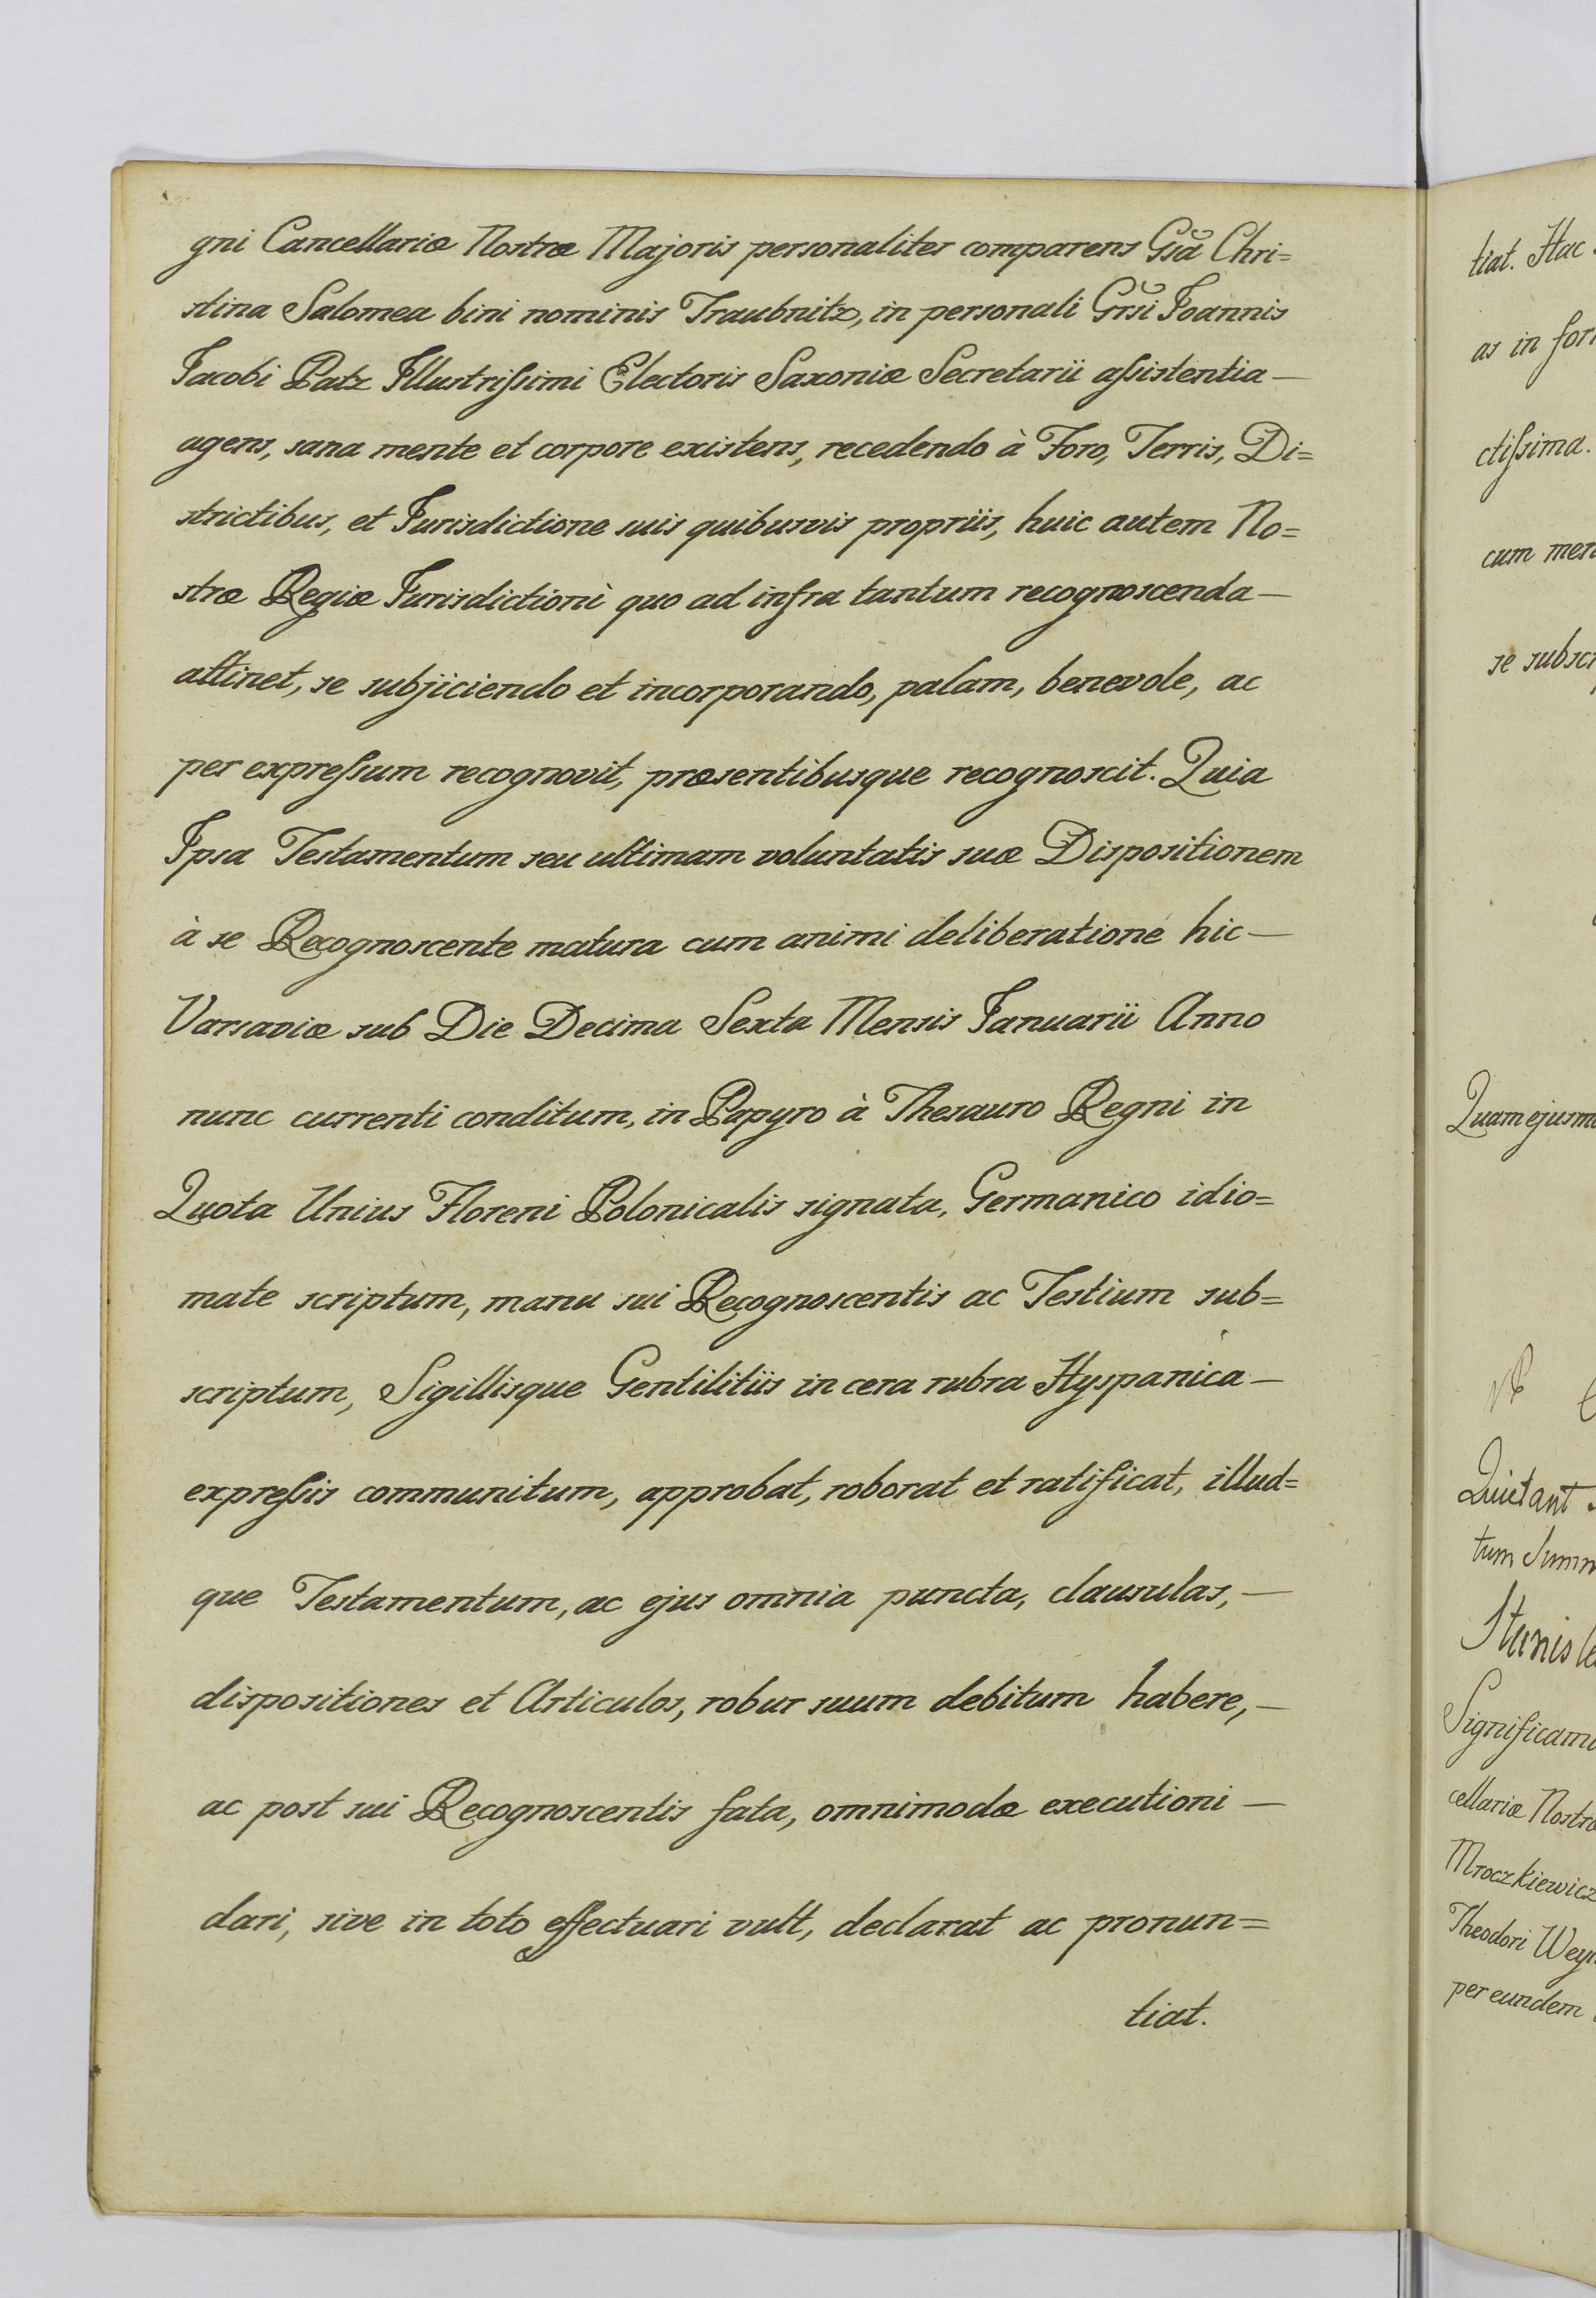 gni Cancellariæ Nostræ Majoris personaliter comparens Gsã Chri=
stina Salomea bini nominis Traubnitz, in personali Grsi Joannis
Jacobi Patz Illustriſsimi Electoris Saxoniæ Secretarii aſsistentia —
agens, sana mente et corpore existens, recedendo à Foro, Terris, Di=
strictibus, et Jurisdictione suis quibusvis propriis, huic autem No=
stræ Regiæ Jurisdictioni quo ad infra tantum recognoscenda —
attinet, se subjiciendo et incorporando, palam, benevole, ac
per expreſsum recognovit, præsentibusque recognoscit. Quia
Ipsa Testamentum seu ultimam voluntatis suæ Dispositionem
à se Recognoscente matura cum animi deliberatione hic —
Varsaviæ sub Die Decima Sexta Mensis Januarii Anno
nunc currenti conditum, in Papyro à Thesauro Regni in
Quota Unius Floreni Polonicalis signata, Germanico idio=
mate scriptum, manu sui Recognoscentis ac Testium sub=
scriptum, Sigillisque Gentilitiis in cera rubra Hyspanica —
expreſsis communitum, approbat, roborat et ratificat, illud=
que Testamentum, ac ejus omnia puncta, clausulas, —
dispositiones et Articulos, robur suum debitum habere, —
ac post sui Recognoscentis fata, omnimodæ executioni —
dari, sive in toto effectuari vult, declarat ac pronun=
tiat.
tiat. Hac
as in for
ctiſsima.
cum men
se subsc
Quam ejusmo
Quietant
tum Summ
Stanisla
Significamu
cellariæ Nostræ
Mroczkiewicz
Theodori Wey
per eundem